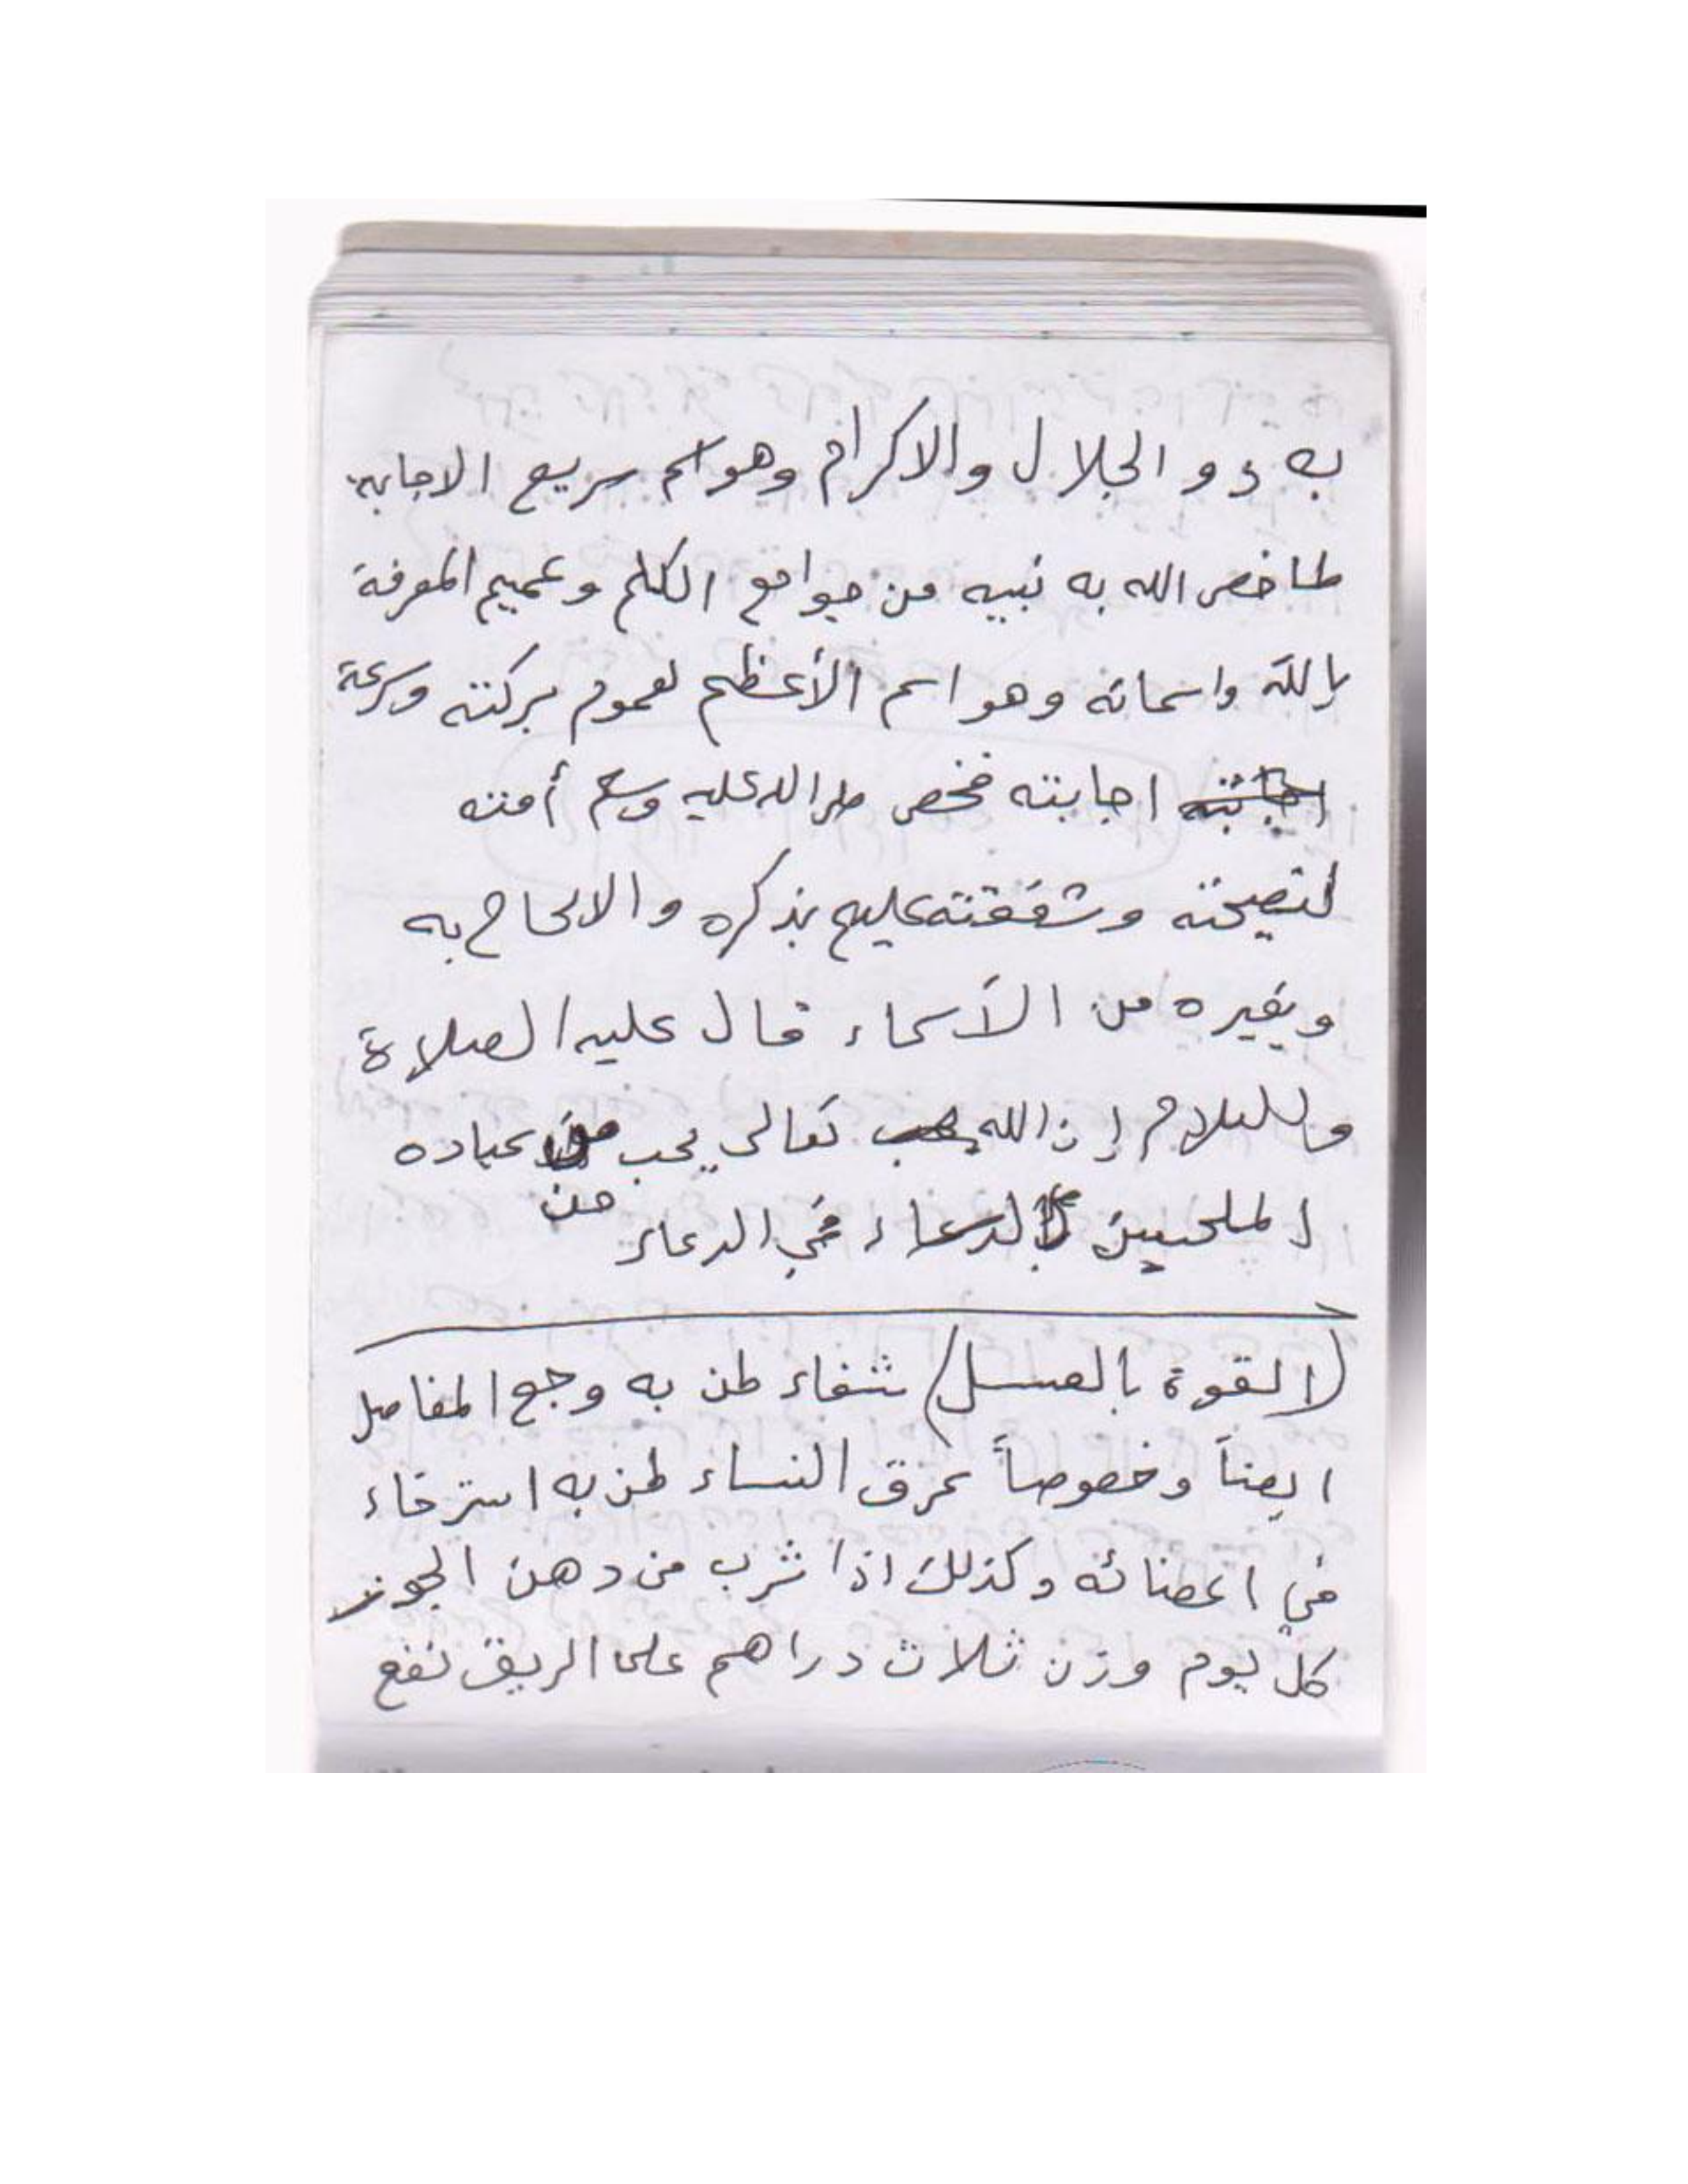 به ذو الجلال والاكرام وهو اسم سريع الاجابه
لما خص الله به نبيه من جوامع الكلم وعميم المعرفة
بالله واسمائه وهو اسم الأعظم لعموم بركته وسرعة
اجابته اجابته فخص صلى الله عليه وسلم أمته
لنصيحته وشفقته عليهم بذكره والالحاح به
وبغيره من الأسماء قال عليه الصلاة
والسلام إن الله يحب تعالى يحب من عباده
الملحين بالدعاء في الدعاء من
(القوة بالعسل) شفاء لمن به وجع المفاصل
ايضاً وخصوصاً عرق النساء لمن به استرخاء
في اعضائه وكذلك اذا شرب من دهن الجوز
كل يوم وزن ثلاث دراهم على الريق نفع